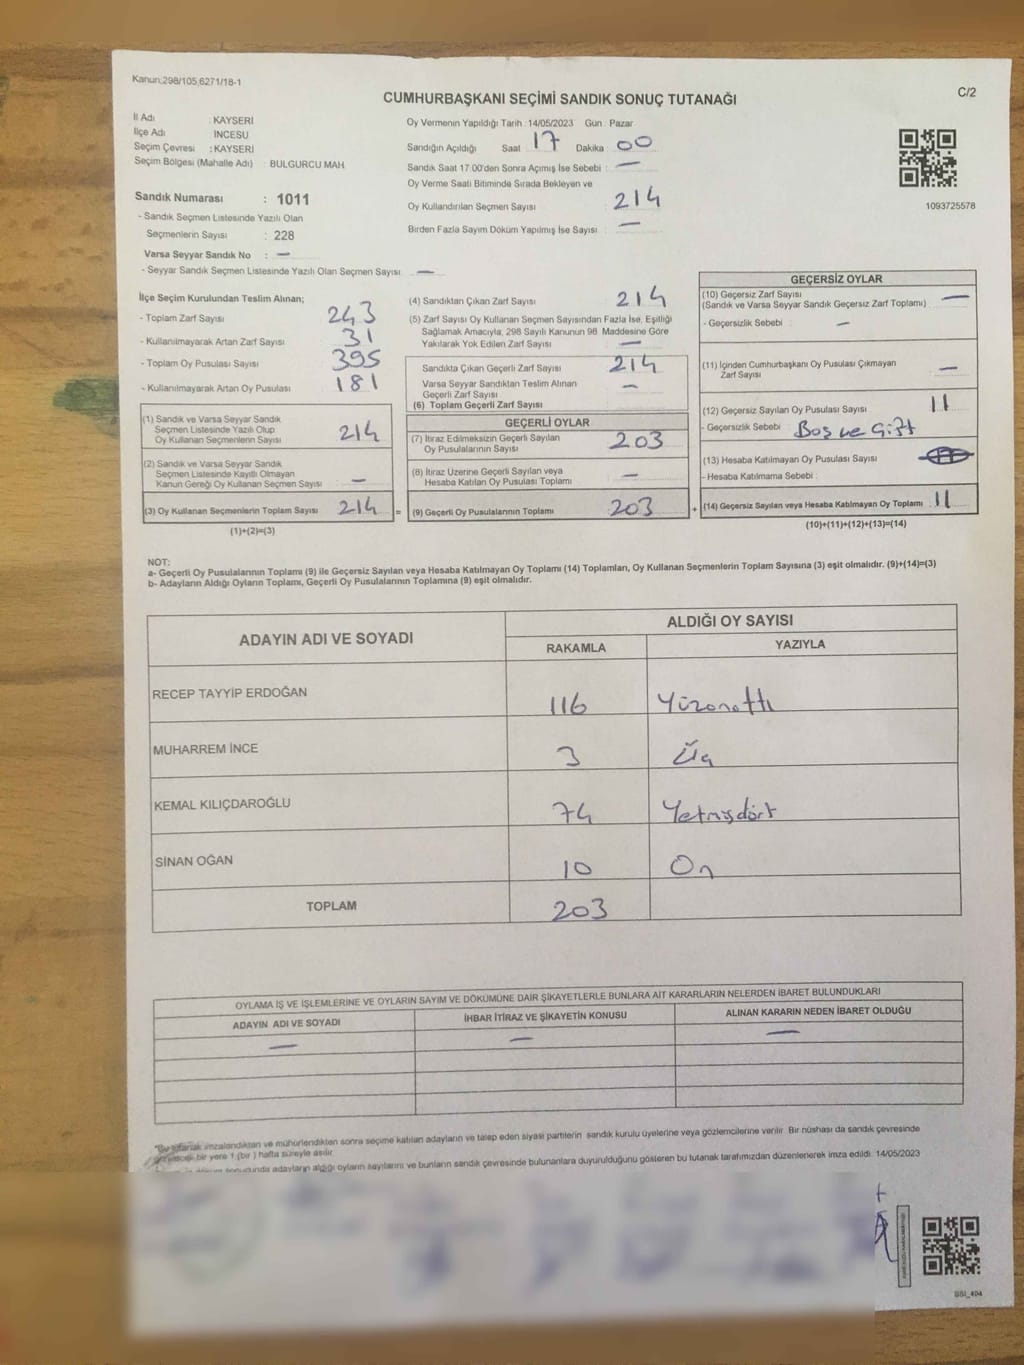 Kanun:298/105,6271/18-1
C/2
CUMHURBAŞKANI SEÇİMİ SANDIK SONUÇ TUTANAĞI
İl Adı : KAYSERİ
İlçe Adı İNCESU
Seçim Çevresi : KAYSERİ
Seçim Bölgesi (Mahalle Adı) : BULGURCU MAH.
Sandık Numarası : 1011
- Sandık Seçmen Listesinde Yazılı Olan
Seçmenlerin Sayısı : 228
Varsa Seyyar Sandık No : —
- Seyyar Sandık Seçmen Listesinde Yazılı Olan Seçmen Sayısı —
Oy Vermenin Yapıldığı Tarih : 14/05/2023 Gün : Pazar
Sandığın Açıldığı Saat 17 Dakika 00
Sandık Saat 17:00'den Sonra Açımış İse Sebebi : —
Oy Verme Saati Bitiminde Sırada Bekleyen ve
Oy Kullandırılan Seçmen Sayısı 214
Birden Fazla Sayım Döküm Yapılmış İse Sayısı : —
1093725578
İlçe Seçim Kurulundan Teslim Alınan;
- Toplam Zarf Sayısı 243
- Kullanılmayarak Artan Zarf Sayısı : 31
- Toplam Oy Pusulası Sayısı 395
- Kullanılmayarak Artan Oy Pusulası 181
(1) Sandık ve Varsa Seyyar Sandık
Seçmen Listesinde Yazılı Olup
Oy Kullanan Seçmenlerin Sayısı 214
(2) Sandık ve Varsa Seyyar Sandık
Seçmen Listesinde Kayıtlı Olmayan
Kanun Gereği Oy Kullanan Seçmen Sayısı —
(3) Oy Kullanan Seçmenlerin Toplam Sayısı 214 =
(1)+(2)=(3)
(4) Sandıktan Çıkan Zarf Sayısı 214
(5) Zarf Sayısı Oy Kullanan Seçmen Sayısından Fazla İse, Eşitliği
Sağlamak Amacıyla, 298 Sayılı Kanunun 98. Maddesine Göre
Yakılarak Yok Edilen Zarf Sayısı —
Sandıkta Çıkan Geçerli Zarf Sayısı 214
Varsa Seyyar Sandıktan Teslim Alınan
Geçerli Zarf Sayısı —
(6) Toplam Geçerli Zarf Sayısı
GEÇERLİ OYLAR
(7) İtiraz Edilmeksizin Geçerli Sayılan
Oy Pusulalarının Sayısı 203
(8) İtiraz Üzerine Geçerli Sayılan veya
Hesaba Katılan Oy Pusulası Toplamı —
(9) Geçerli Oy Pusulalarının Toplamı 203 +
GEÇERSİZ OYLAR
(10) Geçersiz Zarf Sayısı
(Sandık ve Varsa Seyyar Sandık Geçersiz Zarf Toplamı) —
- Geçersizlik Sebebi : —
(11) İçinden Cumhurbaşkanı Oy Pusulası Çıkmayan
Zarf Sayısı —
(12) Geçersiz Sayılan Oy Pusulası Sayısı 11
- Geçersizlik Sebebi : Boş ve Çift
(13) Hesaba Katılmayan Oy Pusulası Sayısı
- Hesaba Katılmama Sebebi :
(14) Geçersiz Sayılan veya Hesaba Katılmayan Oy Toplamı : 11
(10)+(11)+(12)+(13)=(14)
NOT:
a- Geçerli Oy Pusulalarının Toplamı (9) ile Geçersiz Sayılan veya Hesaba Katılmayan Oy Toplamı (14) Toplamları, Oy Kullanan Seçmenlerin Toplam Sayısına (3) eşit olmalıdır. (9)+(14)=(3)
b- Adayların Aldığı Oyların Toplamı, Geçerli Oy Pusulalarının Toplamına (9) eşit olmalıdır.
ADAYIN ADI VE SOYADI ALDIĞI OY SAYISI
RAKAMLA YAZIYLA
RECEP TAYYİP ERDOĞAN 116 Yüzonaltı
MUHARREM İNCE 3 Üç
KEMAL KILIÇDAROĞLU 74 Yetmişdört
SİNAN OĞAN 10 On
TOPLAM 203
OYLAMA İŞ VE İŞLEMLERİNE VE OYLARIN SAYIM VE DÖKÜMÜNE DAİR ŞİKAYETLERLE BUNLARA AİT KARARLARIN NELERDEN İBARET BULUNDUKLARI
ADAYIN ADI VE SOYADI İHBAR İTİRAZ VE ŞİKAYETİN KONUSU ALINAN KARARIN NEDEN İBARET OLDUĞU
— — —
imzalandıktan ve mühürlendikten sonra seçime katılan adayların ve talep eden siyasi partilerin sandık kurulu üyelerine veya gözlemcilerine verilir. Bir nüshası da sandık çevresinde
bir yere 1 (bir) hafta süreyle asılır.
sonucunda adayların aldığı oyların sayılarını ve bunların sandık çevresinde bulunanlara duyurulduğunu gösteren bu tutanak tarafımızdan düzenlenerek imza edildi. 14/05/2023